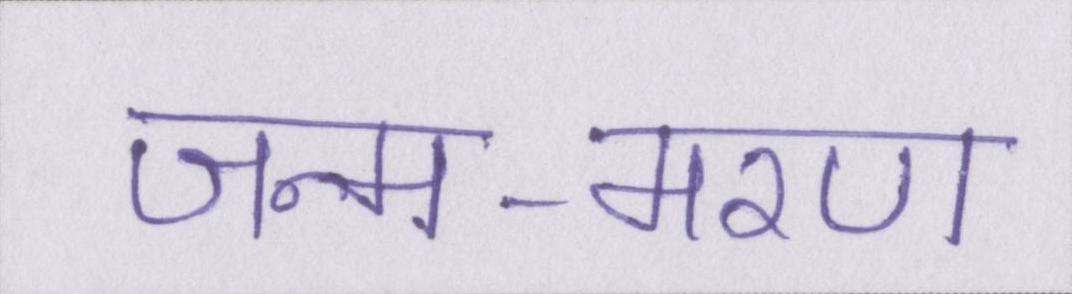 जन्म-मरण